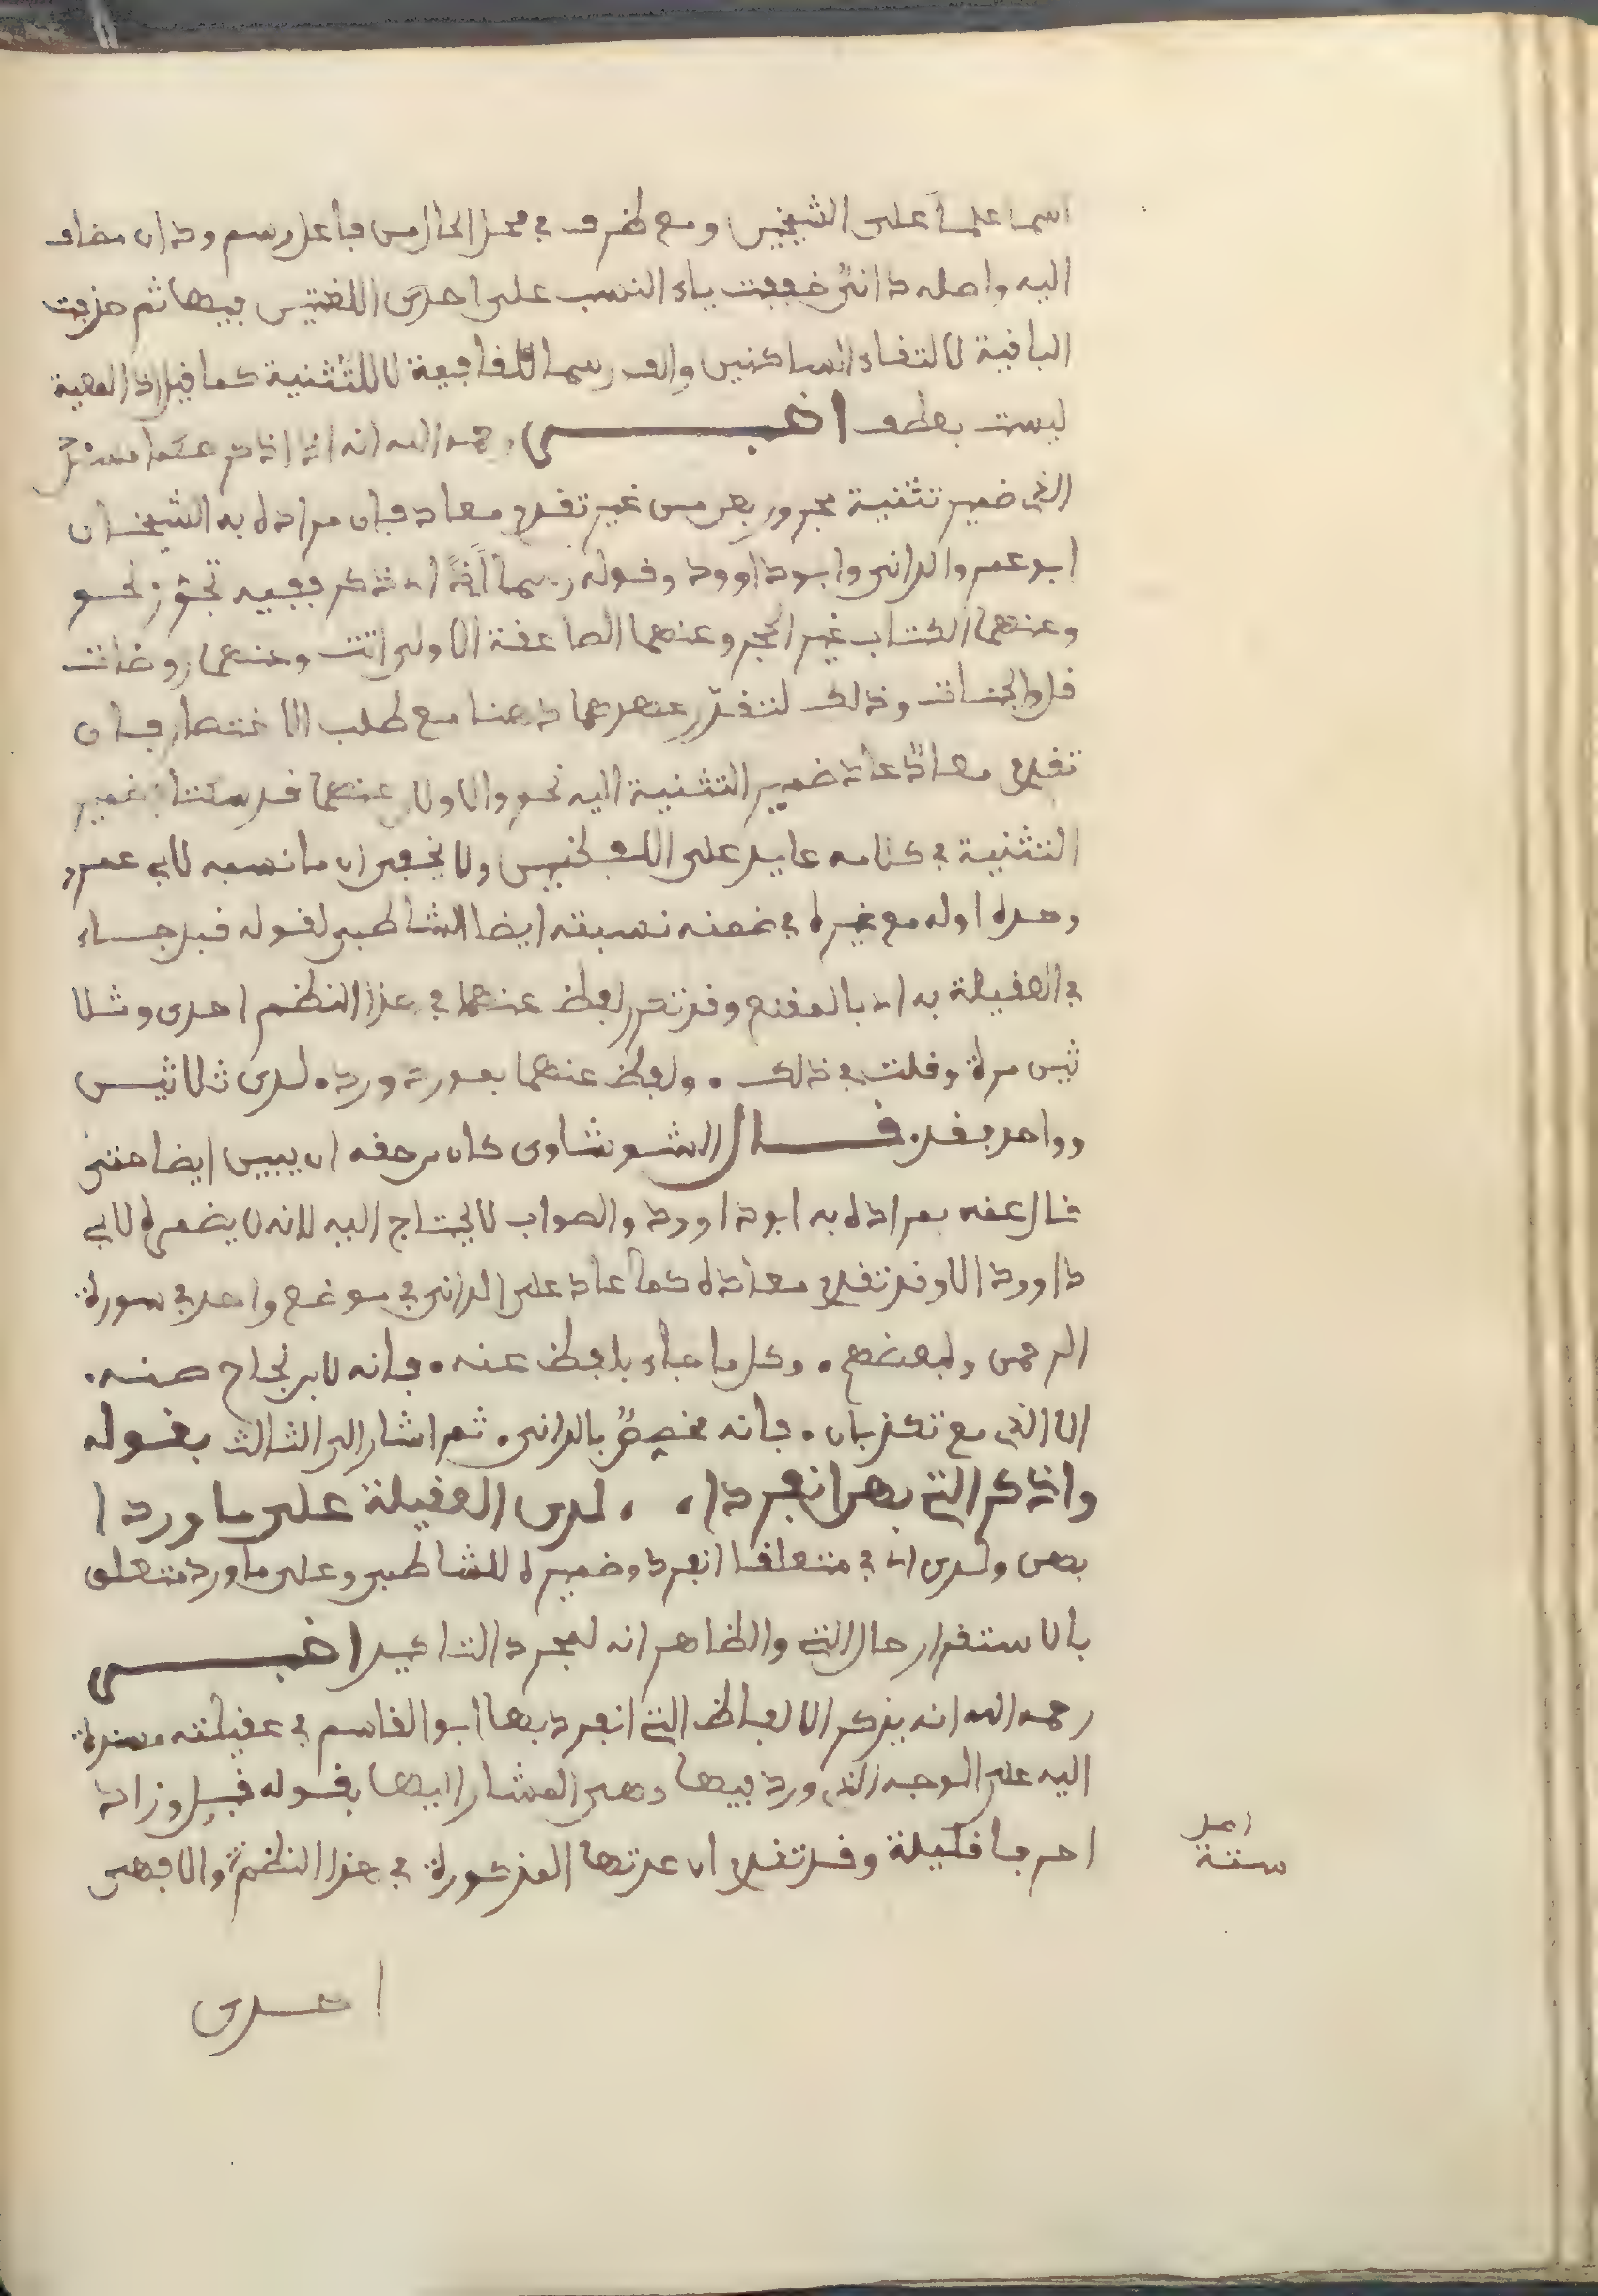 اسما علما على الشيخين ومع ظرف في محل الحال من فاعل رسم ودان مضاف
اليه واصله دانيّ خففت ياء النسب على احدى اللغتين فيها ثم حذفت
الباقية لالتقاء الساكنين والف رسما للقافية لا للتثنية كما قيل اذ المعية
ليست بعطف اخبـــر رحمه الله انه اذا
الذي ضمير تثنية مجرور بعن من غير تقدم معاد فان مراده به الشيخان
ابو عمرو الداني وابو داوود وقوله رسما اي ذكر ففيه تجوّز نحو
وعنهما الكتاب غير الحجر وعنهما الصاعقة الاولى اتت وعنهما روضات
قل والجنات وذلك لتقرّر عهدهما ذهنا مع طلب الاختصار فان
تقدم معاد عاد ضمير التثنية اليه نحو والاولان عنهما قد سكتا فضمير
التثنية في كلامه عايد على اللفظين ولا يخفى ان ما نسبه لابي عمرو
وحده اوله مع غيره في ضمنه نسبته ايضا للشاطبي لقوله قبل جـاء
في العقيلة به اي بالمقنع وقد تكرر لفظ عنهما في هذا النظم احدى وثلا
ثين مرة وقلت في ذلك . ولفظ عنهما بمورد ورد . لدى ثلاثيـن
وواحد فقد . قــــال الشوشاوي كان من حقه ان يبين ايضا متى
قال عنه بمراده به ابو داوود والصواب لا يحتاج اليه لانه لا يضمره لابي
داوود الا وقد تقدم معاده كما عاد على الداني في موضع واحد في سورة
الرحمن ولبعضهم . وكل ما جاء بلفظ عنه . فانه لابن نجاح صنه .
الا الذي مع تكذبان . فانه مخصصٌ بالداني . ثم اشار الى الثالث بقوله
واذكر التي بهن انفردا . . لدى العقيلة على ما وردا
بهن ولدى اي في متعلقا انفرد وضميره للشاطبي وعلى ما ورد متعلق
بالاستقرار حال التي والظاهر انه لمجرد التاكيد اخبـــــر
رحمه الله انه يذكر الالفاظ التي انفرد بها ابو القاسم في عقيلته مسندة
اليه على الوجه الذي ورد فيها وهي المشار اليها بقوله قبل وزاد
احرفا قليلة وقد تقدم ان عدتها المذكورة في هذا النظم ستة والا فهي
اصل
ستة
احدى